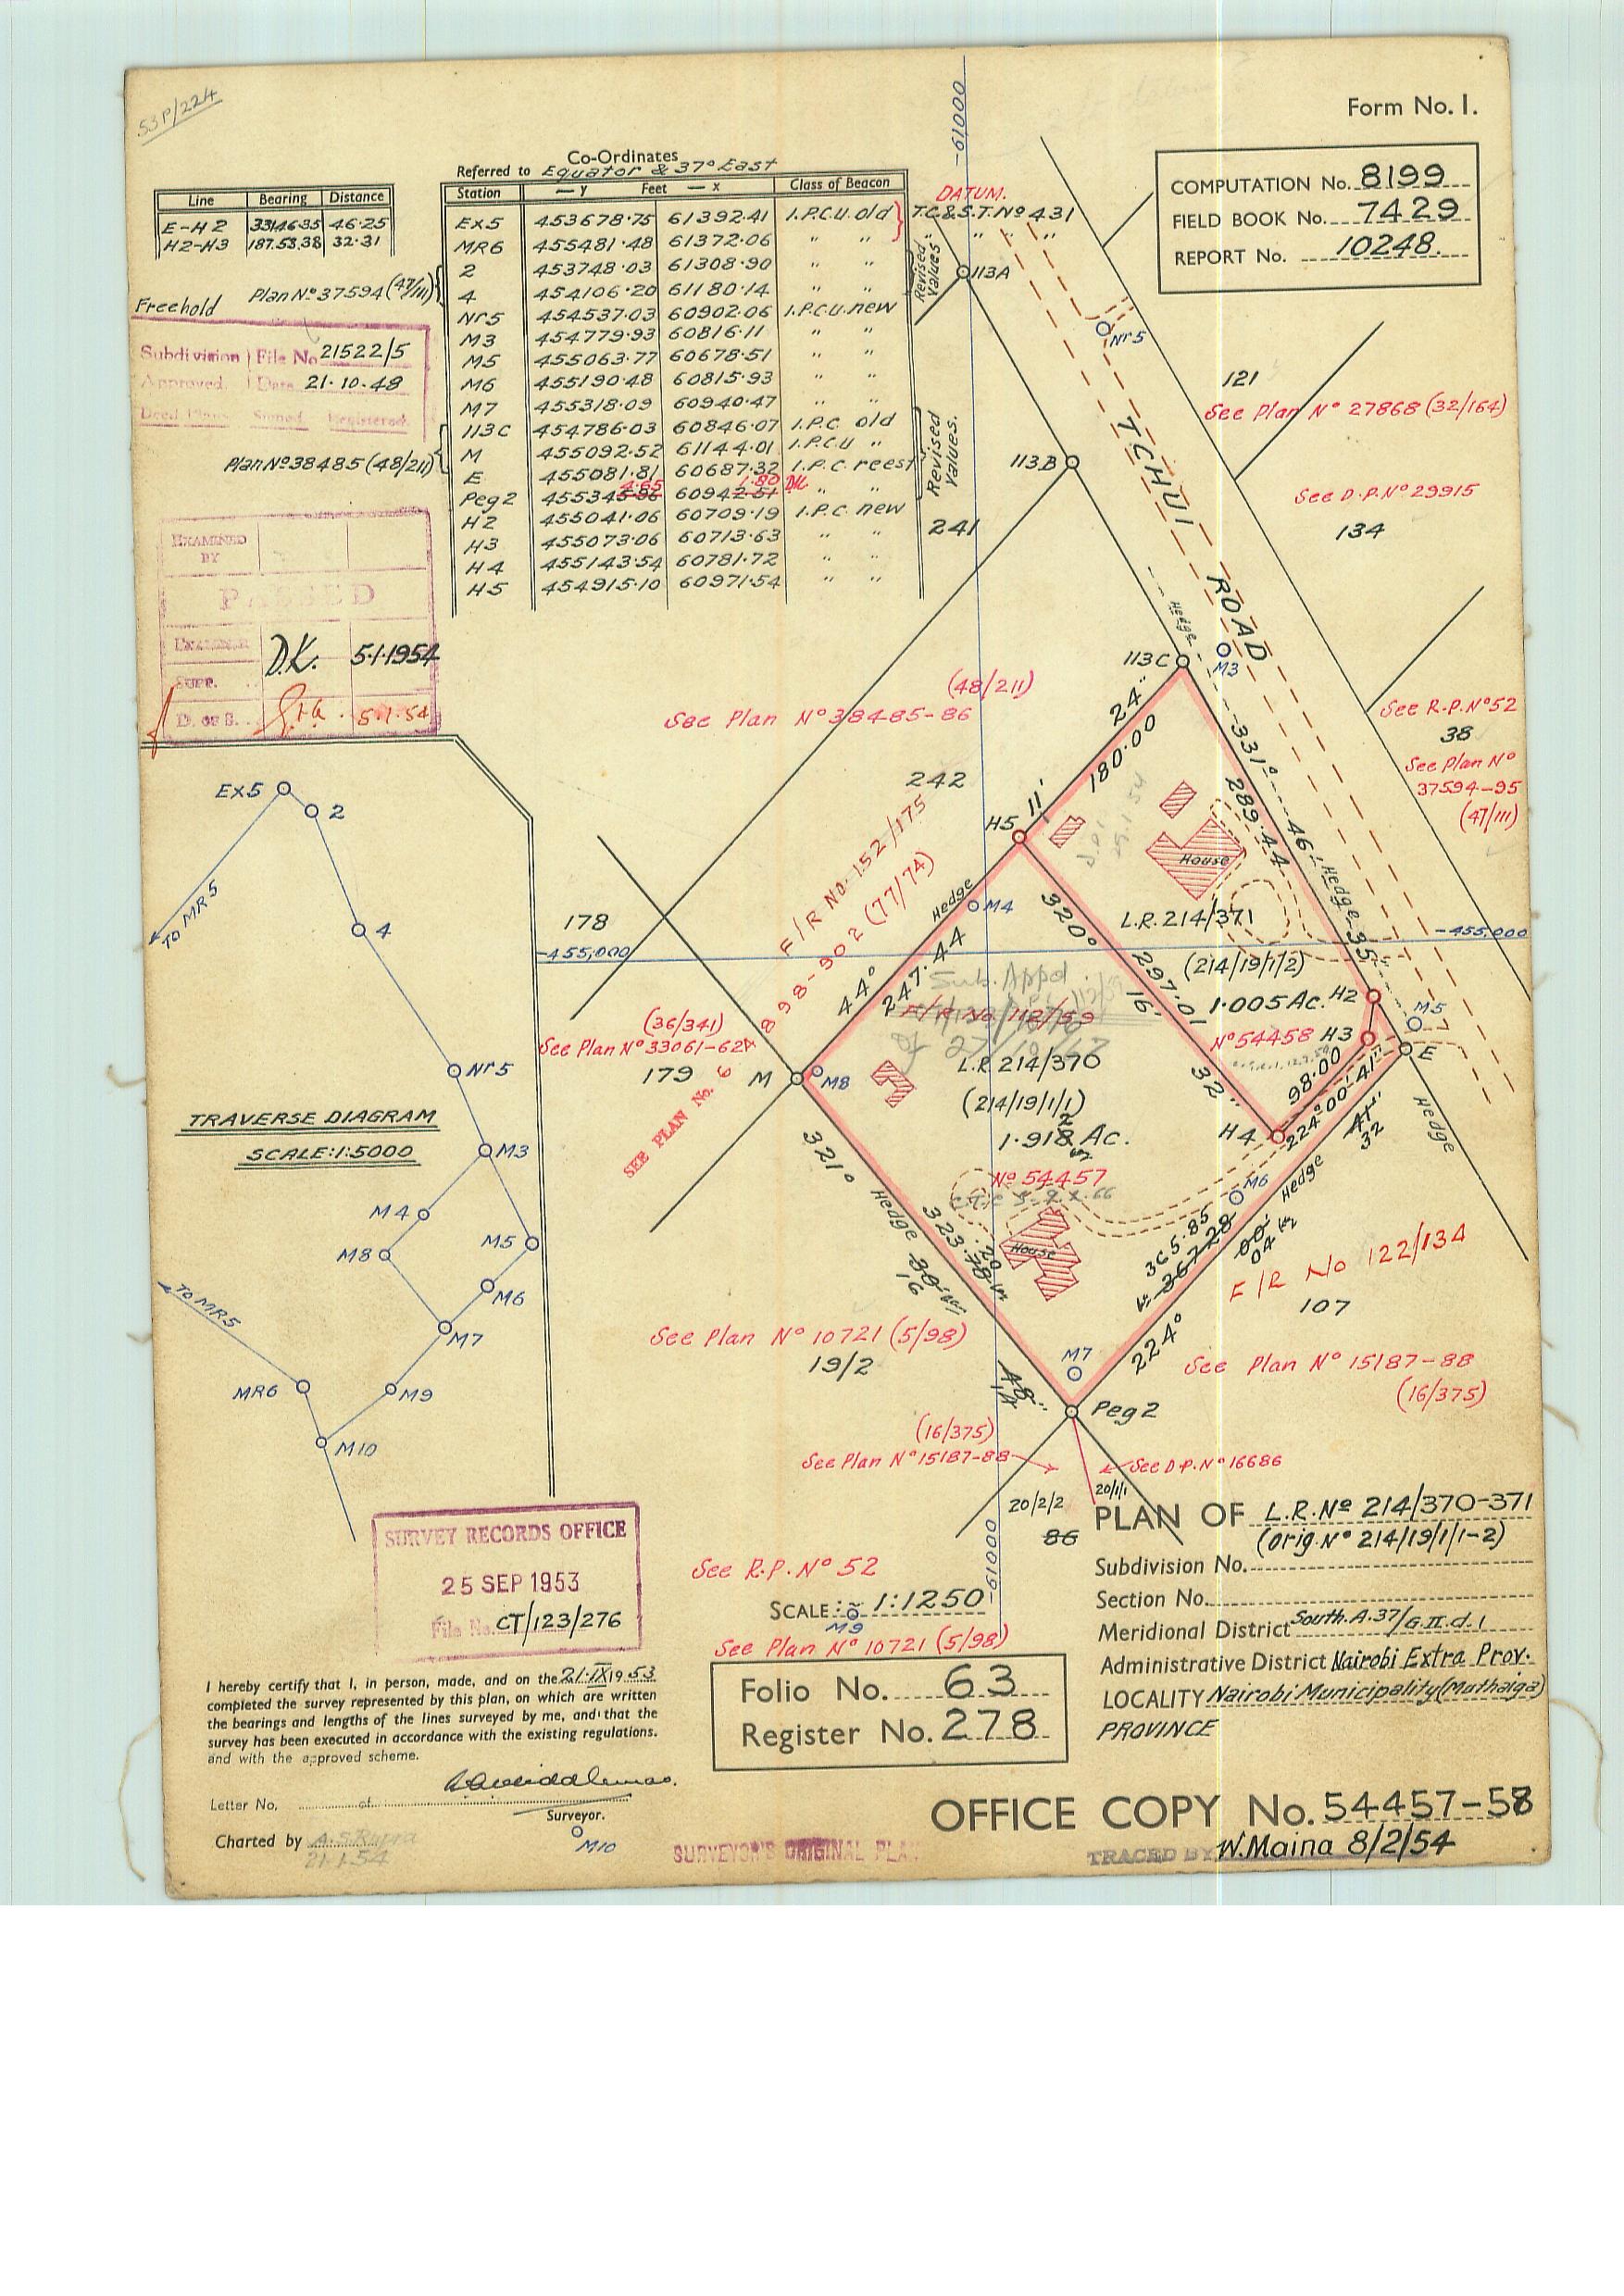 53P/224
Form No. 1.
COMPUTATION No. 8199
FIELD BOOK No. 7429
REPORT No. 10248.
Line Bearing Distance
E-H2 331.46.35 46.25
H2-H3 187.53.38 32.31
Co-Ordinates
Referred to Equator & 37° East
Station — y Feet — x Class of Beacon
Ex5 453678.75 61392.41 I.P.C.U. old
MR6 455481.48 61372.06 " "
2 453748.03 61308.90 " "
4 454106.20 61180.14 " "
Nr5 454537.03 60902.06 I.P.C.U. new
M3 454779.93 60816.11 " "
M5 455063.77 60678.51 " "
M6 455190.48 60815.93 " "
M7 455318.09 60940.47 " "
113C 454786.03 60846.07 I.P.C. old
M 455092.52 61144.01 I.P.C.U "
E 455081.81 60687.32 I.P.C. reest
4.65 1.80
Peg 2 455345.86 60942.51 " "
H2 455041.06 60709.19 I.P.C. new
H3 455073.06 60713.63 " "
H4 455143.54 60781.72 " "
H5 454915.10 60971.54 " "
DATUM.
T.C.&S.T. No 431
" " "
Revised Values
Revised Values.
Plan No 37594 (47/111)
Freehold
Subdivision File No 21522/5
Approved. Date 21.10.48
Deed Plans Signed Registered.
Plan No 38485 (48/211)
EXAMINED BY
PASSED
EXAMINER D.K. 5.1.1954
SUPP.
D. OF S. 5.1.54
-61000
113A
Nr5
121
See Plan No 27868 (32/164)
TCHUI ROAD
113B
See D.P. No 29915
134
241
Hedge
113C
M3
(48/211)
See Plan No 38485-86
See R.P. No 52
38
See Plan No
37594-95
(47/111)
242
24"
180.00
11'
H5
331° 46' 35"
289.44
Hedge
House
F/R No. 152/175
SEE PLAN No. 64898-902 (77/74)
178
Hedge
M4
320°
297.01
16'
32"
L.R. 214/371
(214/19/1/2)
1.005 Ac.
No 54458
-455,000
-455,000
44°
247.44
Sub. Appd.
F/R No 112/59
H2
H3
M5
E
(36/341)
See Plan No 33061-62
179
M
M8
L.R. 214/370
(214/19/1/1)
1.918 Ac.
2
No 54457
98.00
224° 00' 41"
H4
41"
32
Hedge
M6
Hedge
321°
Hedge
323.78
16
House
365.85
367.28
00'
04
224°
F/R No 122/134
107
See Plan No 10721 (5/98)
19/2
M7
See Plan No 15187-88
(16/375)
Peg 2
(16/375)
See Plan No 15187-88
See D.P. No 16686
20/2/2
20/1/1
86
Ex5
2
TO MR5
4
Nr5
TRAVERSE DIAGRAM
SCALE: 1:5000
M3
M4
M5
M8
M6
TO MR5
M7
MR6
M9
M10
SURVEY RECORDS OFFICE
25 SEP 1953
File No. CT/123/276
See R.P. No 52
SCALE: 1:1250
M9
-61000
See Plan No 10721 (5/98)
Folio No. 63
Register No. 278
PLAN OF L.R. No 214/370-371
(Orig. No 214/19/1/1-2)
Subdivision No.
Section No.
Meridional District South. A.37/G.II.d.1
Administrative District Nairobi Extra Prov.
LOCALITY Nairobi Municipality (Muthaiga)
PROVINCE
I hereby certify that I, in person, made, and on the 21.IX 1953
completed the survey represented by this plan, on which are written
the bearings and lengths of the lines surveyed by me, and that the
survey has been executed in accordance with the existing regulations.
and with the approved scheme.
Letter No. of
Surveyor.
Charted by
21.1.54
M10
SURVEYOR'S ORIGINAL PLAN
OFFICE COPY No. 54457-58
TRACED BY W. Maina 8/2/54